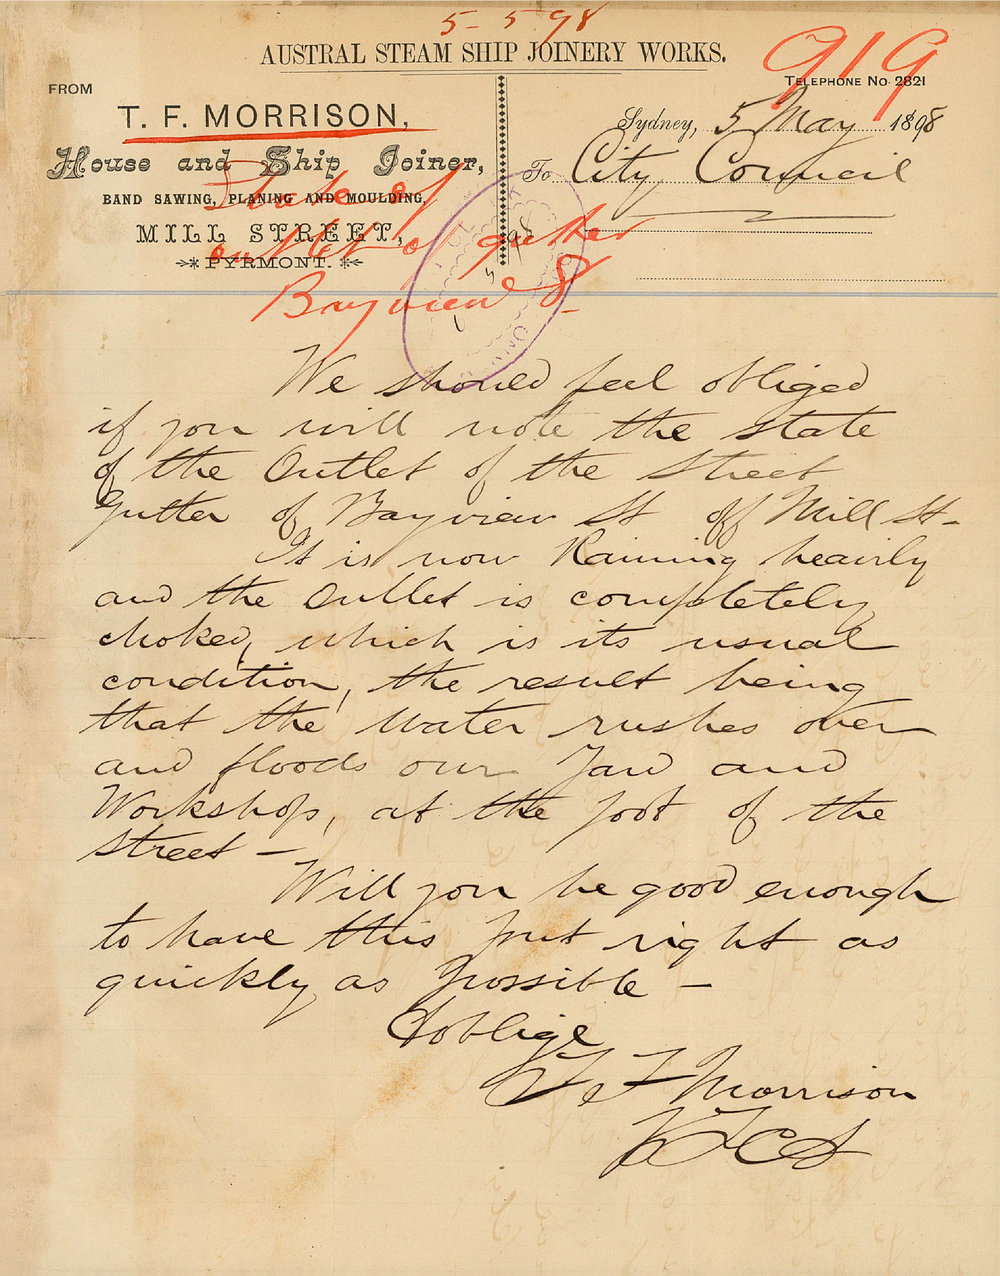 5-5-98
AUSTRAL STEAM SHIP JOINERY WORKS.
919
TELEPHONE No. 2821
FROM
T. F. MORRISON,
House and Ship Joiner,
BAND SAWING, PLANING AND MOULDING,
MILL STREET,
PYRMONT.
Sydney, 5 May 1898
To City Council
State of
outlet of gutter
Bayview St
We should feel obliged
if you will note the State
of the Outlet of the Street
Gutter of Bayview St off Mill St-
It is now Raining heavily
and the Outlet is completely
choked, which is its usual
condition, the result being
that the Water rushes over
and floods our Yard and
Workshop, at the foot of the
Street -
Will you be good enough
to have this put right as
quickly as possible -
& oblige
T F Morrison